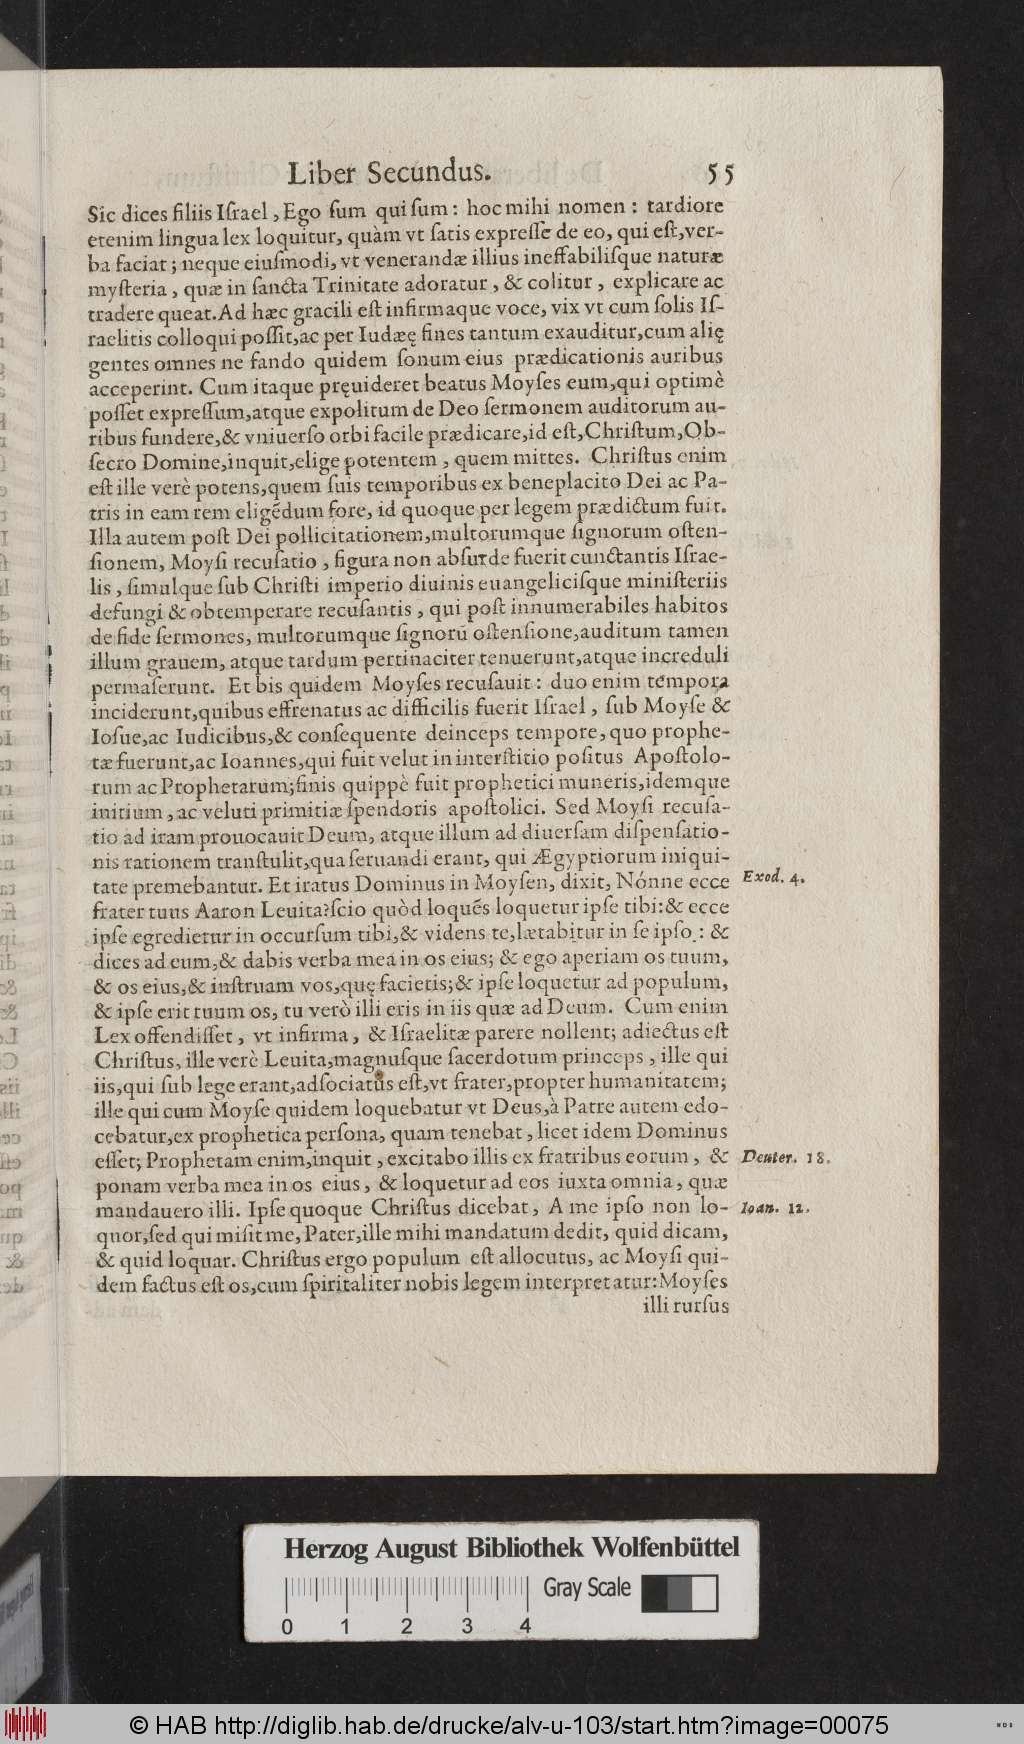 Liber Secundus. 55
Sic dices filiis Iſrael, Ego ſum qui ſum: hoc mihi nomen: tardiore
etenim lingua lex loquitur, quàm vt ſatis expreſſe de eo, qui eſt, ver-
ba faciat; neque eiuſmodi, vt venerandæ illius ineffabiliſque naturæ
myſteria, quæ in ſancta Trinitate adoratur, & colitur, explicare ac
tradere queat. Ad hæc gracili eſt infirmaque voce, vix vt cum ſolis Iſ-
raelitis colloqui poſſit, ac per Iudæę fines tantum exauditur, cum alię
gentes omnes ne fando quidem ſonum eius prædicationis auribus
acceperint. Cum itaque pręuideret beatus Moyſes eum, qui optimè
poſſet expreſſum, atque expolitum de Deo ſermonem auditorum au-
ribus fundere, & vniuerſo orbi facile prædicare, id eſt, Chriſtum, Ob-
ſecro Domine, inquit, elige potentem, quem mittes. Chriſtus enim
eſt ille verè potens, quem ſuis temporibus ex beneplacito Dei ac Pa-
tris in eam rem eligẽdum fore, id quoque per legem prædictum fuit.
Illa autem poſt Dei pollicitationem, multorumque ſignorum oſten-
ſionem, Moyſi recuſatio, figura non abſurde fuerit cunctantis Iſrae-
lis, ſimulque ſub Chriſti imperio diuinis euangeliciſque miniſteriis
defungi & obtemperare recuſantis, qui poſt innumerabiles habitos
de fide ſermones, multorumque ſignorũ oſtenſione, auditum tamen
illum grauem, atque tardum pertinaciter tenuerunt, atque increduli
permaſerunt. Et bis quidem Moyſes recuſauit: duo enim tempora
inciderunt, quibus effrenatus ac difficilis fuerit Iſrael, ſub Moyſe &
Ioſue, ac Iudicibus, & conſequente deinceps tempore, quo prophe-
tæ fuerunt, ac Ioannes, qui fuit velut in interſtitio poſitus Apoſtolo-
rum ac Prophetarum; finis quippè fuit prophetici muneris, idemque
initium, ac veluti primitiæ ſpendoris apoſtolici. Sed Moyſi recuſa-
tio ad iram prouocauit Deum, atque illum ad diuerſam diſpenſatio-
nis rationem tranſtulit, qua ſeruandi erant, qui Ægyptiorum iniqui-
tate premebantur. Et iratus Dominus in Moyſen, dixit, Nónne ecce Exod. 4.
frater tuus Aaron Leuita? ſcio quòd loquẽs loquetur ipſe tibi: & ecce
ipſe egredietur in occurſum tibi, & videns te, lætabitur in ſe ipſo: &
dices ad eum, & dabis verba mea in os eius; & ego aperiam os tuum,
& os eius, & inſtruam vos, quę facietis; & ipſe loquetur ad populum,
& ipſe erit tuum os, tu verò illi eris in iis quæ ad Deum. Cum enim
Lex offendiſſet, vt infirma, & Iſraelitæ parere nollent; adiectus eſt
Chriſtus, ille verè Leuita, magnuſque ſacerdotum princeps, ille qui
iis, qui ſub lege erant, adſociatus eſt, vt frater, propter humanitatem;
ille qui cum Moyſe quidem loquebatur vt Deus, à Patre autem edo-
cebatur, ex prophetica perſona, quam tenebat, licet idem Dominus
eſſet; Prophetam enim, inquit, excitabo illis ex fratribus eorum, & Deuter. 18.
ponam verba mea in os eius, & loquetur ad eos iuxta omnia, quæ
mandauero illi. Ipſe quoque Chriſtus dicebat, A me ipſo non lo- Ioan. 12.
quor, ſed qui miſit me, Pater, ille mihi mandatum dedit, quid dicam,
& quid loquar. Chriſtus ergo populum eſt allocutus, ac Moyſi qui-
dem factus eſt os, cum ſpiritaliter nobis legem interpretatur: Moyſes
illi rurſus
Herzog August Bibliothek Wolfenbüttel
Gray Scale
0 1 2 3 4
© HAB http://diglib.hab.de/drucke/alv-u-103/start.htm?image=00075